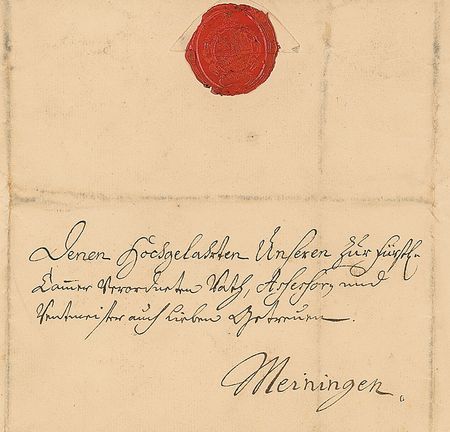 Denen Hochgelahrten Unseren zur fürstl.
Cammer Verordneten Rath, Assessorn und
Rentmeister auch lieben Getreuen.
Meiningen.